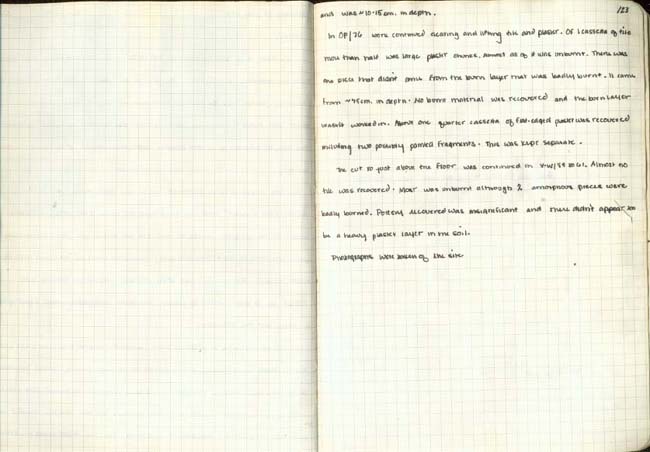 123
and was ~10-15cm. in depth.
In OP/76 were continued clearing and lifting tile and plaster. Of 1 cassera of tile
more than half was large plaster chunks, almost all of it was unburnt. There was
one piece that didn't come from the burn layer that was badly burnt. It came
from ~45cm. in depth. No bone material was recovered and the burn layer
wasn't worked in. About one quarter cassera of flat-edged plaster was recovered
including two possibly painted fragments. This was kept separate.
The cut to just above the floor was continued in to 61. Almost no
tile was recovered. Most was unburnt although 2 amorphous pieces were
badly burned. Pottery recovered was insignificant and there didn't appear to
be a heavy plaster layer in the soil.
Photographs were taken of the site